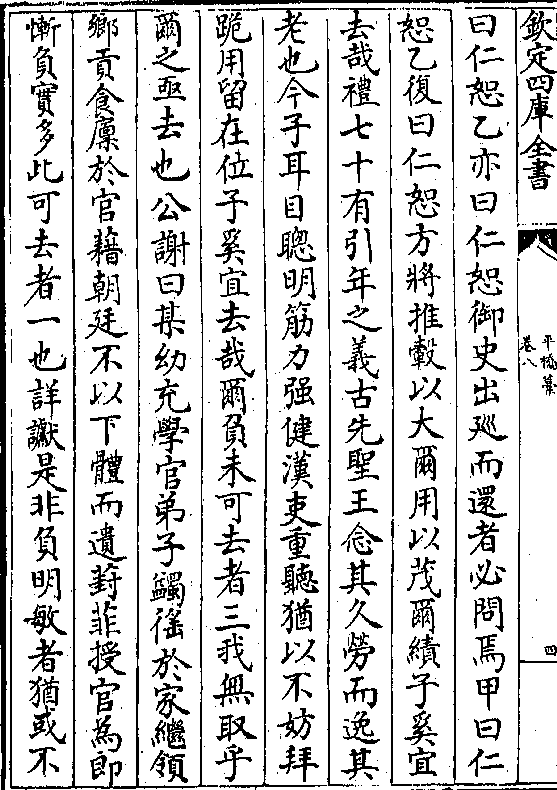 欽定四庫全書
平橋藁
卷八
四
曰仁恕乙亦曰仁恕御史出廵而還者必問焉甲曰仁
恕乙復曰仁恕方將推轂以大爾用以茂爾績子奚宜
去哉禮七十有引年之義古先聖王念其久勞而逸其
老也今子耳目聰明筋力强健漢吏重聽猶以不妨拜
跪用留在位子奚宜去哉爾負未可去者三我無取乎
爾之亟去也公謝曰某幼充學官弟子蠲徭於家繼領
鄉貢食廩於官藉朝廷不以下體而遺葑菲授官為郎
慚負實多此可去者一也詳讞是非負明敏者猶或不